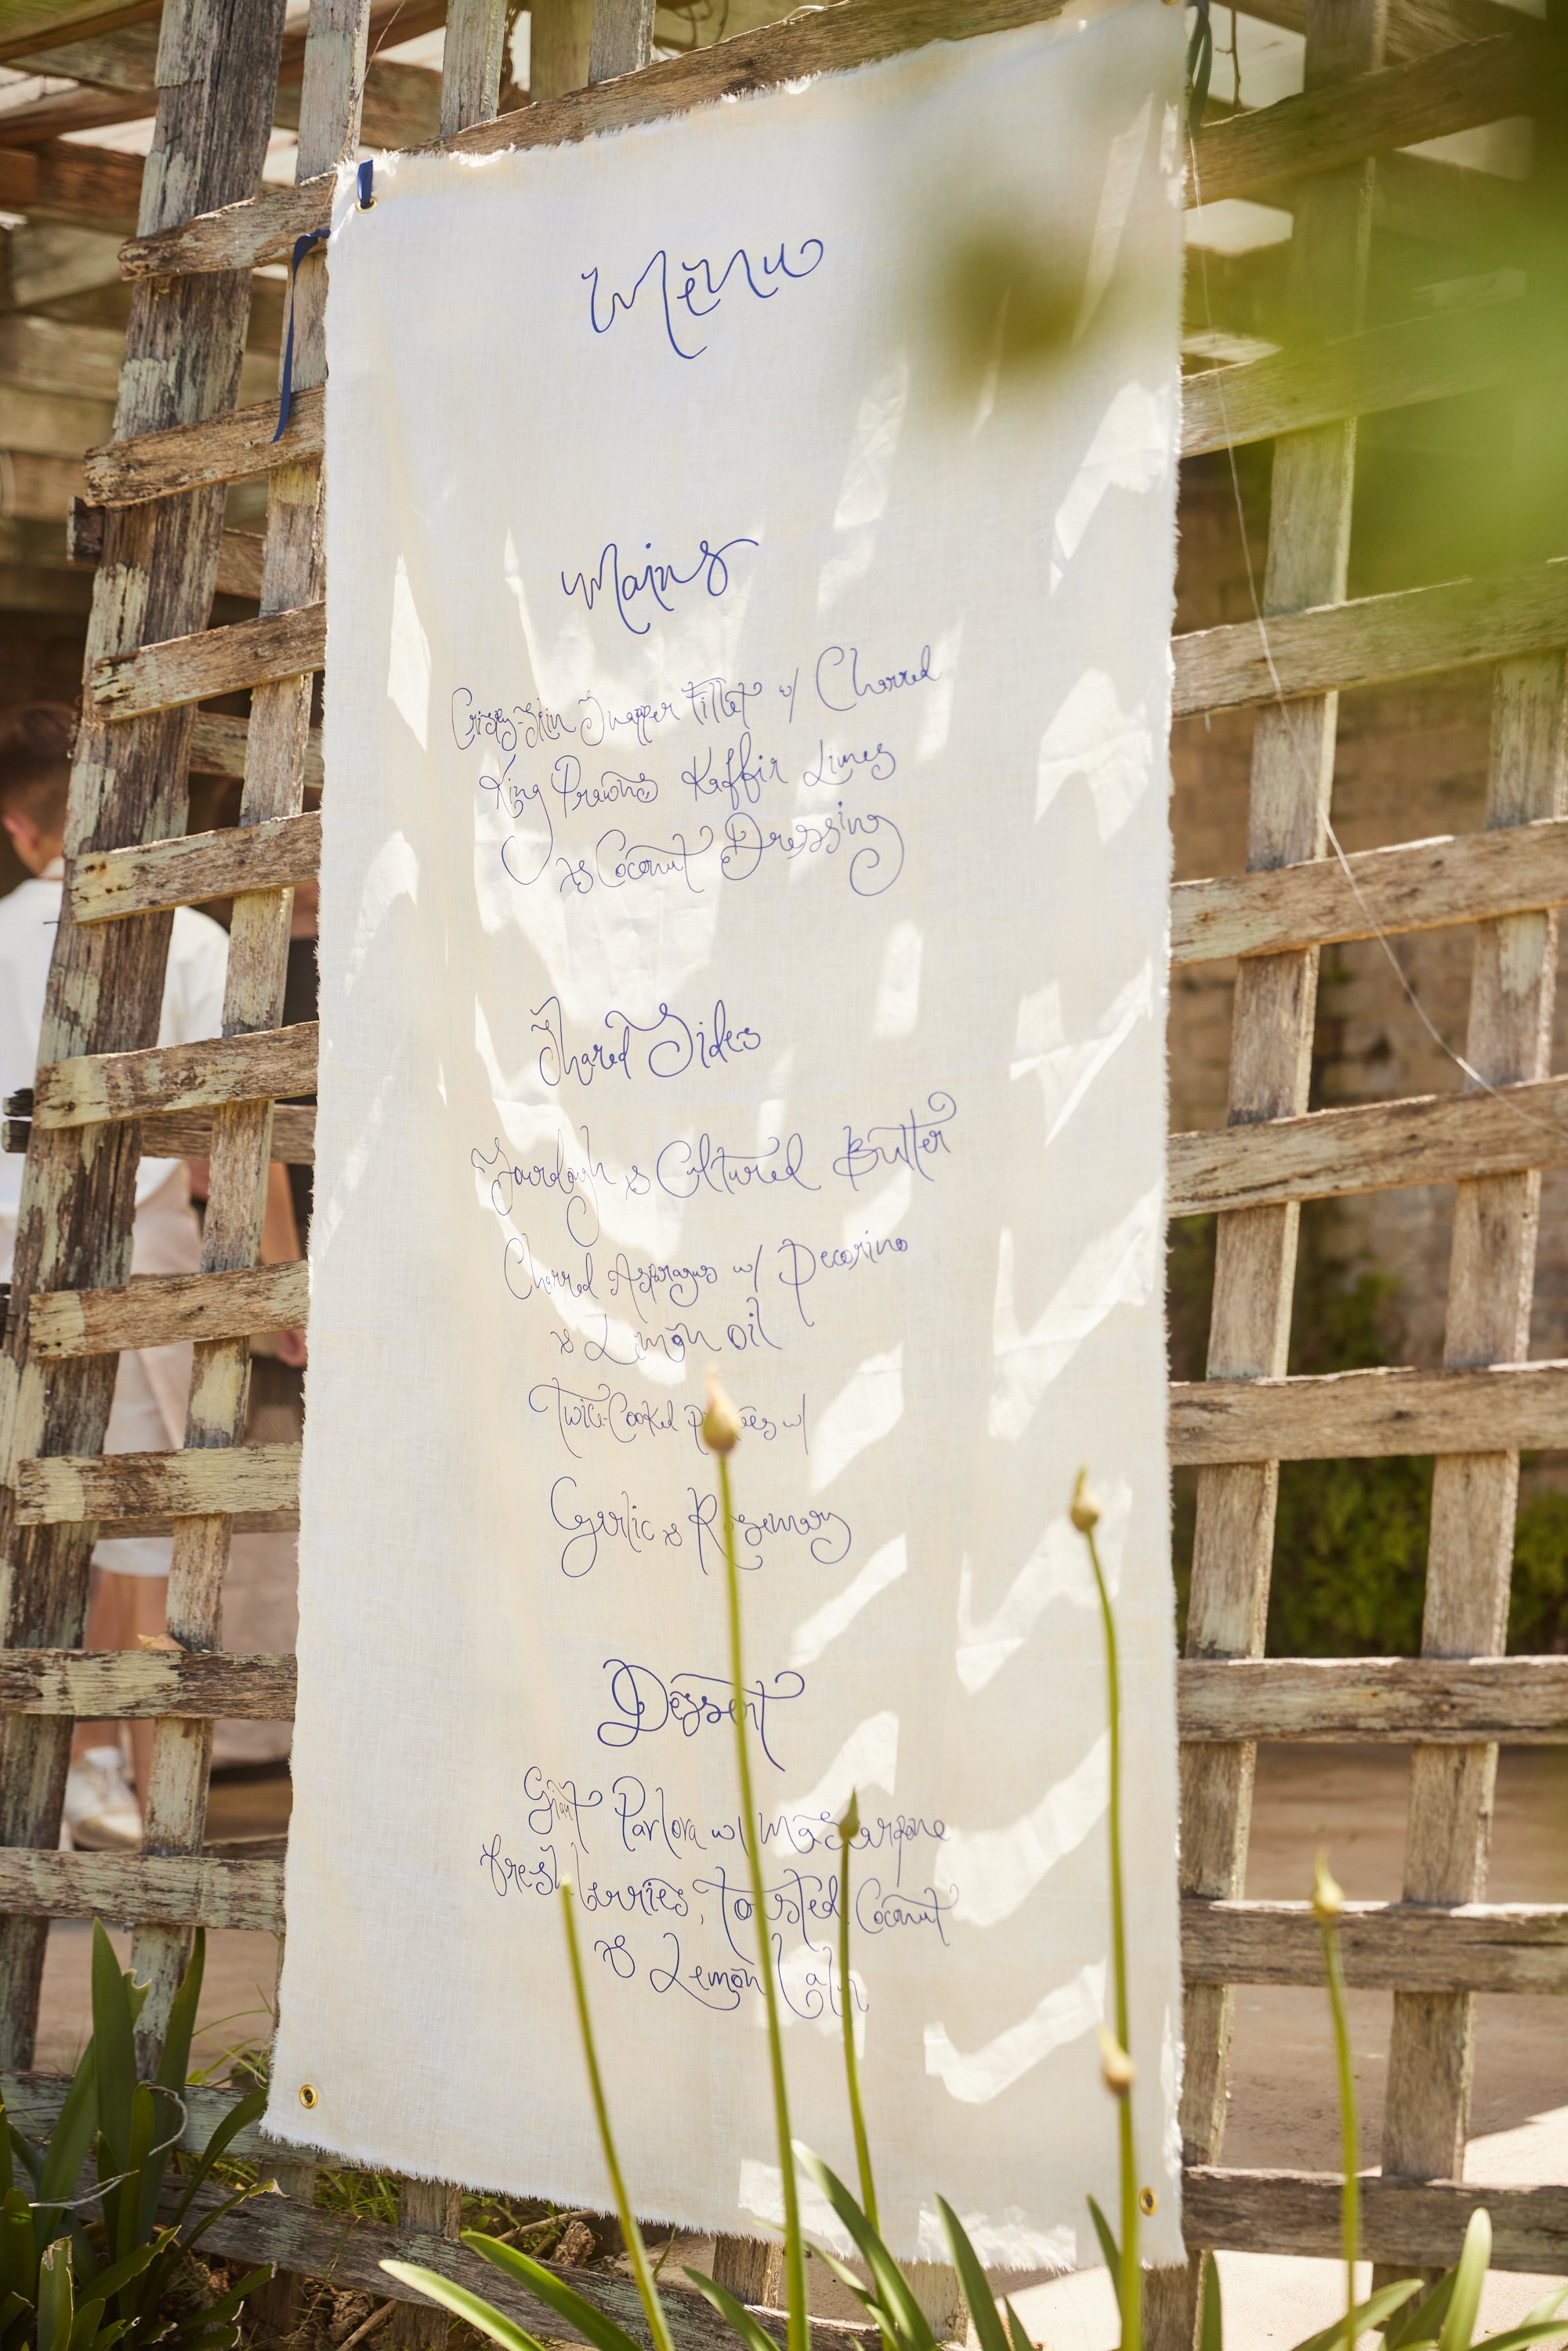 Menu
Mains
Crispy-Skin Snapper Fillet w/ Charred
King Prawns Kaffir Limes
& Coconut Dressing
Shared Sides
Sourdough & Cultured Butter
Charred Asparagus w/ Pecorino
& Lemon Oil
Twice-Cooked w/
Garlic & Rosemary
Dessert
Giant Pavlova w/ Mascarpone
fresh berries, Toasted Coconut
& Lemon